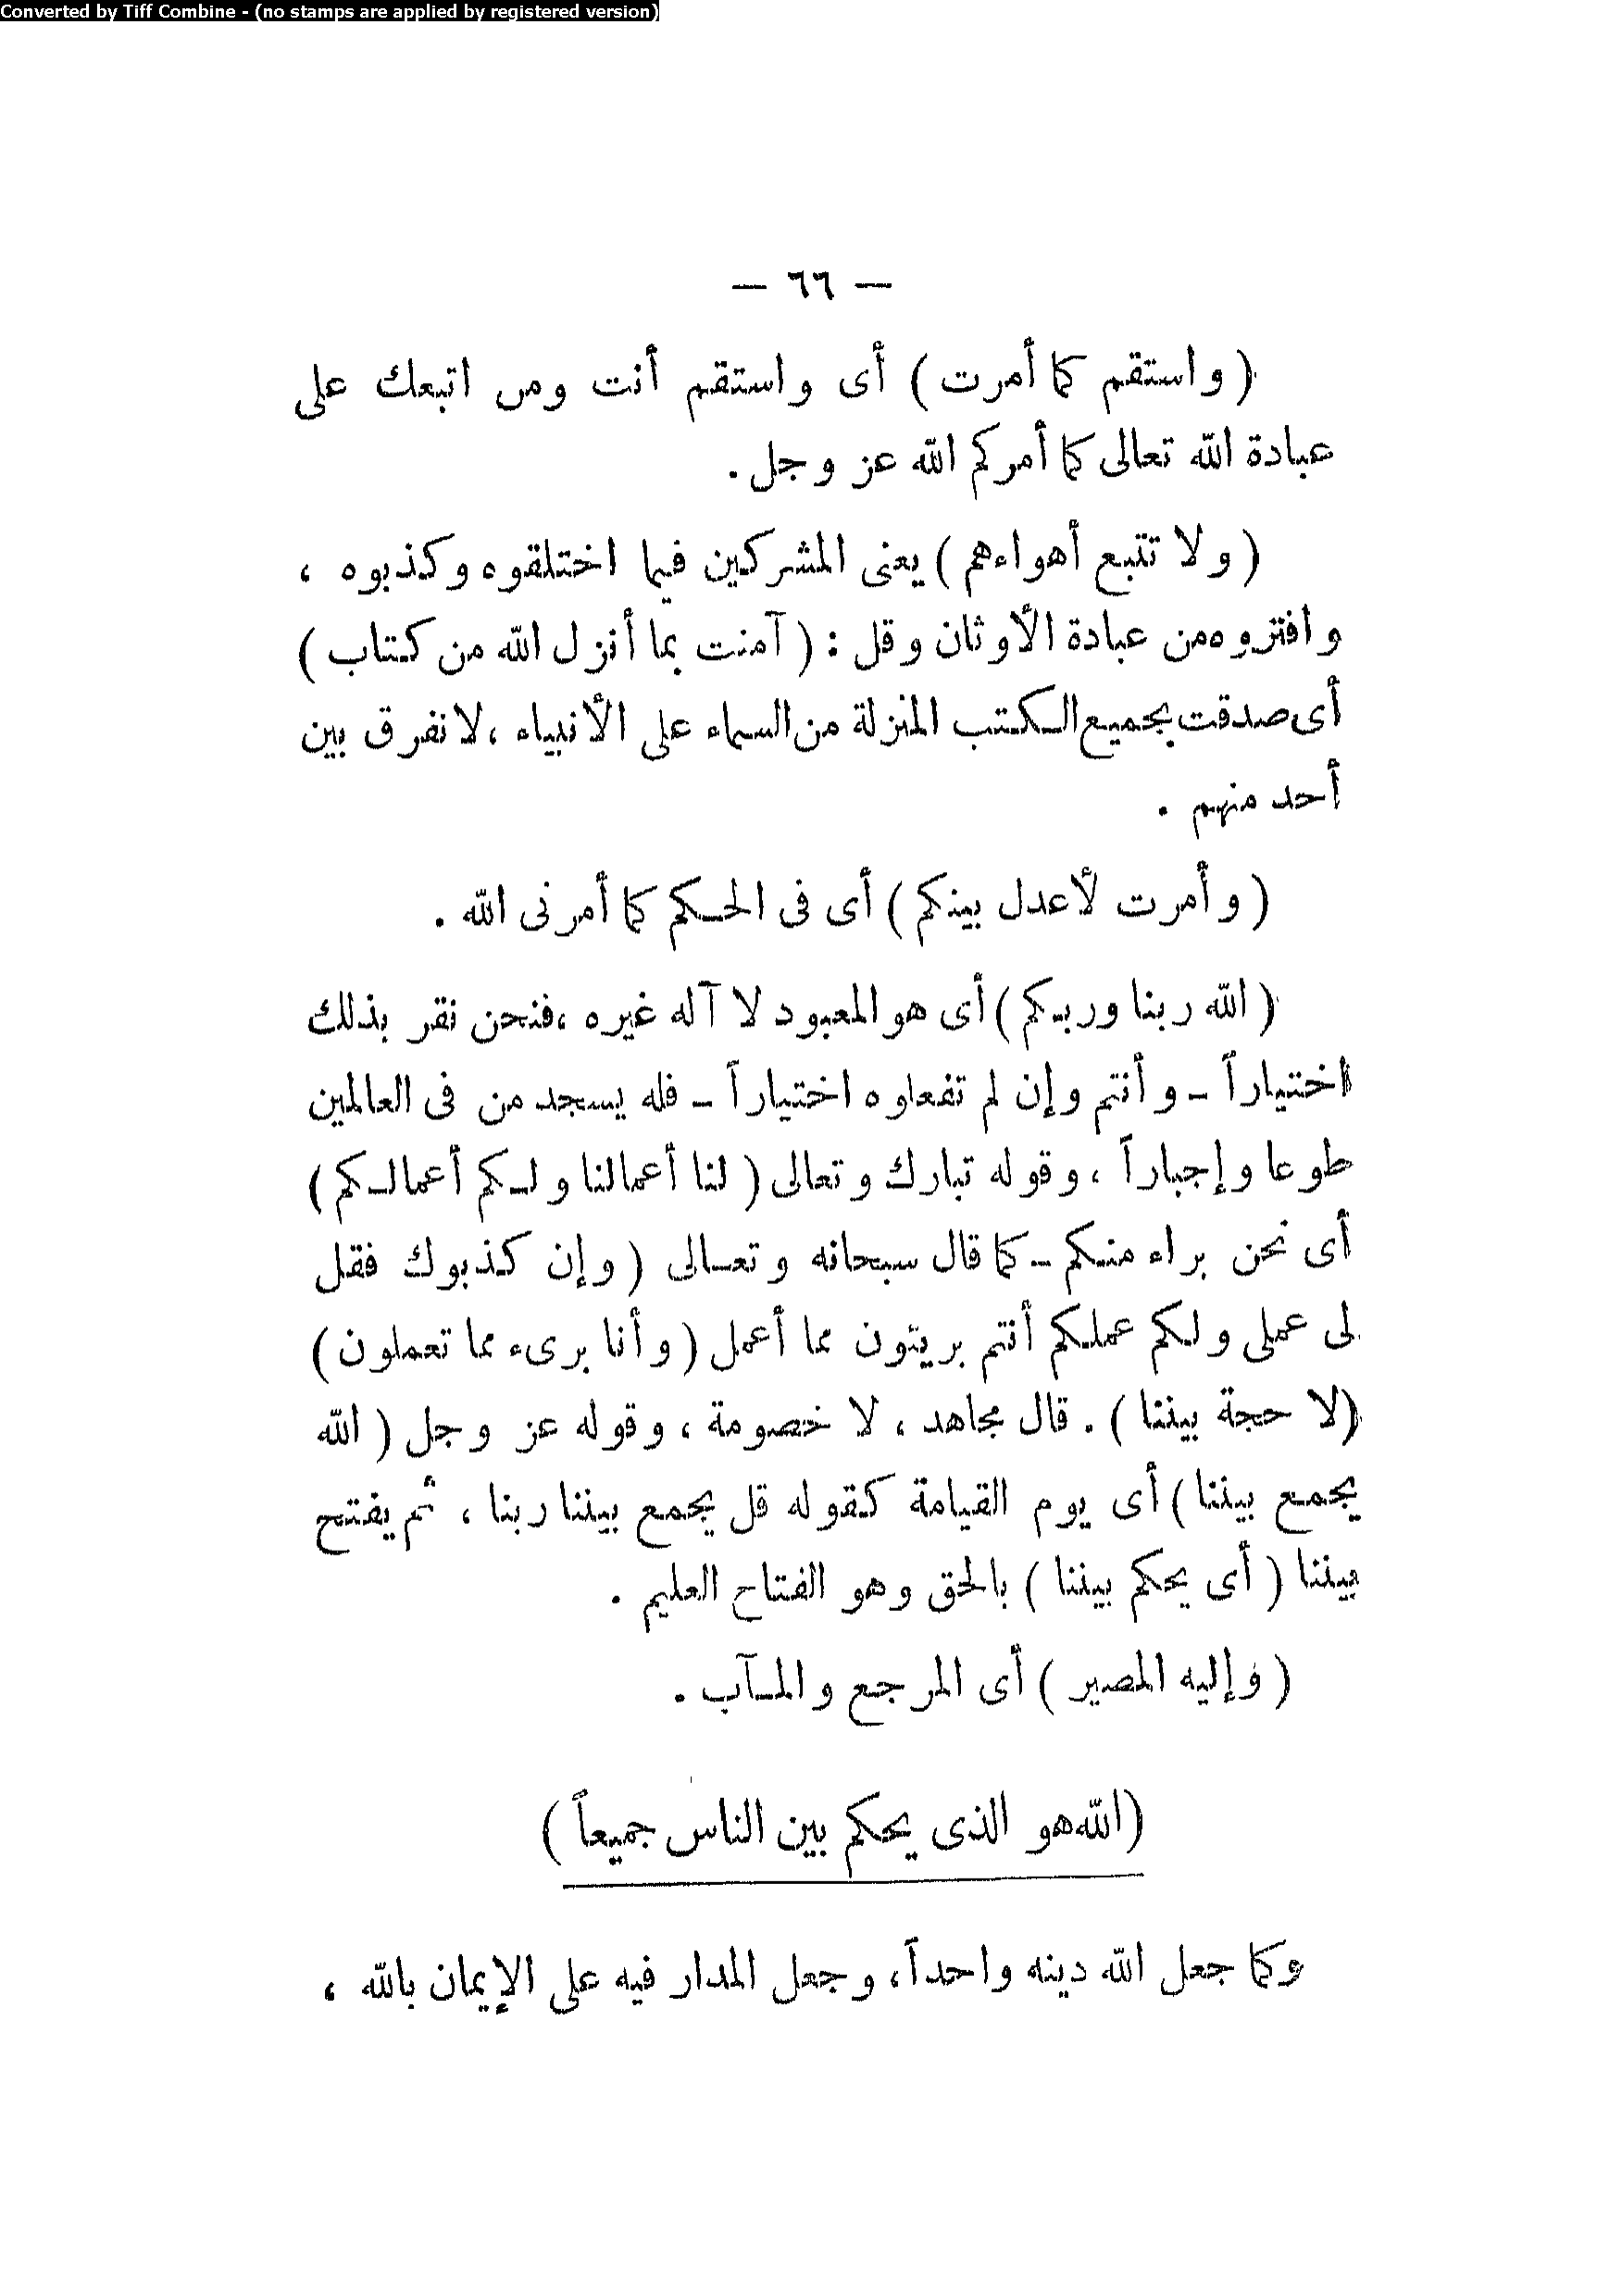 Converted by Tiff Combine - (no stamps are applied by registered version)
— ٦٦ —
( واستقم كما أمرت ) أى واستقم أنت ومن اتبعك على
عبادة الله تعالى كما أمركم الله عز وجل .
( ولا تتبع أهواءهم ) يعنى المشركين فيما اختلقوه وكذبوه ،
وافتروه من عبادة الأوثان وقل : ( آمنت بما أنزل الله من كتاب )
أى صدقت بجميع الكتب المنزلة من السماء على الأنبياء ، لا نفرق بين
أحد منهم .
( وأمرت لأعدل بينكم ) أى فى الحكم كما أمرنى الله .
( الله ربنا وربكم ) أى هو المعبود لا آله غيره ، فنحن نقر بذلك
اختياراً - وأنتم وإن لم تفعلوه اختياراً - فله يسجد من فى العالمين
طوعا وإجباراً ، وقوله تبارك وتعالى ( لنا أعمالنا ولكم أعمالكم )
أى نحن براء منكم - كما قال سبحانه وتعالى ( وإن كذبوك فقل
لى عملى ولكم عملكم أنتم بريئون مما أعمل ( وأنا برىء مما تعملون )
( لا حجة بيننا ) . قال مجاهد ، لا خصومة ، وقوله عز وجل ( الله
يجمع بيننا ) أى يوم القيامة كقوله قل يجمع بيننا ربنا ، ثم يفتح
بيننا ( أى يحكم بيننا ) بالحق وهو الفتاح العليم .
( وإليه المصير ) أى المرجع والمآب .
( الله هو الذى يحكم بين الناس جميعاً )
وكما جعل الله دينه واحداً ، وجعل المدار فيه على الإيمان بالله ،